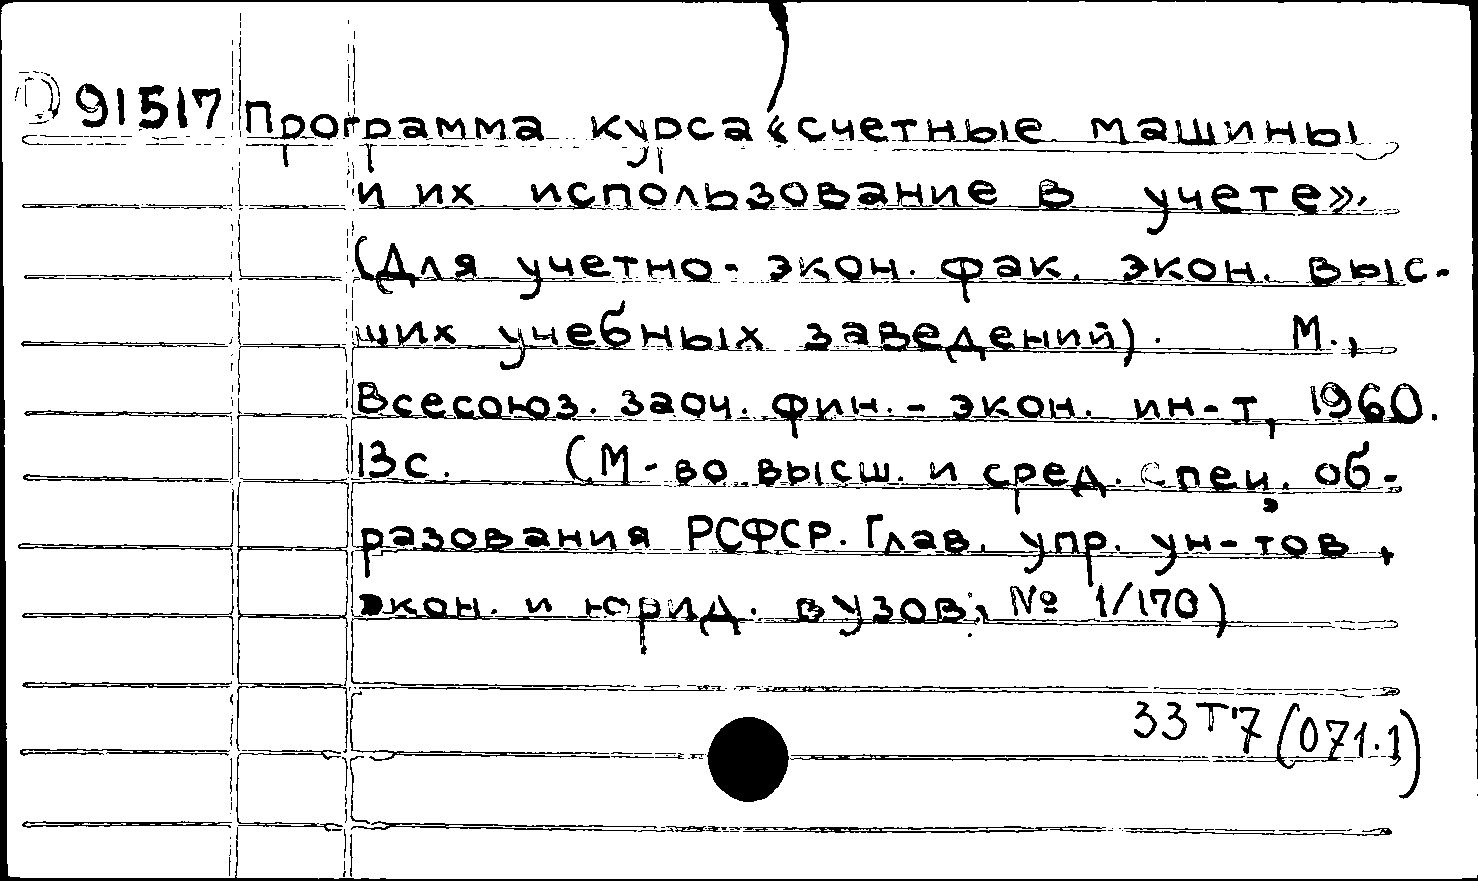 91517 Программа курса «счетные машины
и их использование в учете».
(Для учетно-экон. фак. экон. выс-
ших учебных заведений). М.,
Всесоюз. заоч. фин.-экон. ин-т, 1960.
13с. (М-во высш. и сред. спец. об-
разования РСФСР. Глав. упр. ун-тов,
экон. и юрид. вузов, № 1/170)
33Т7(071.1)